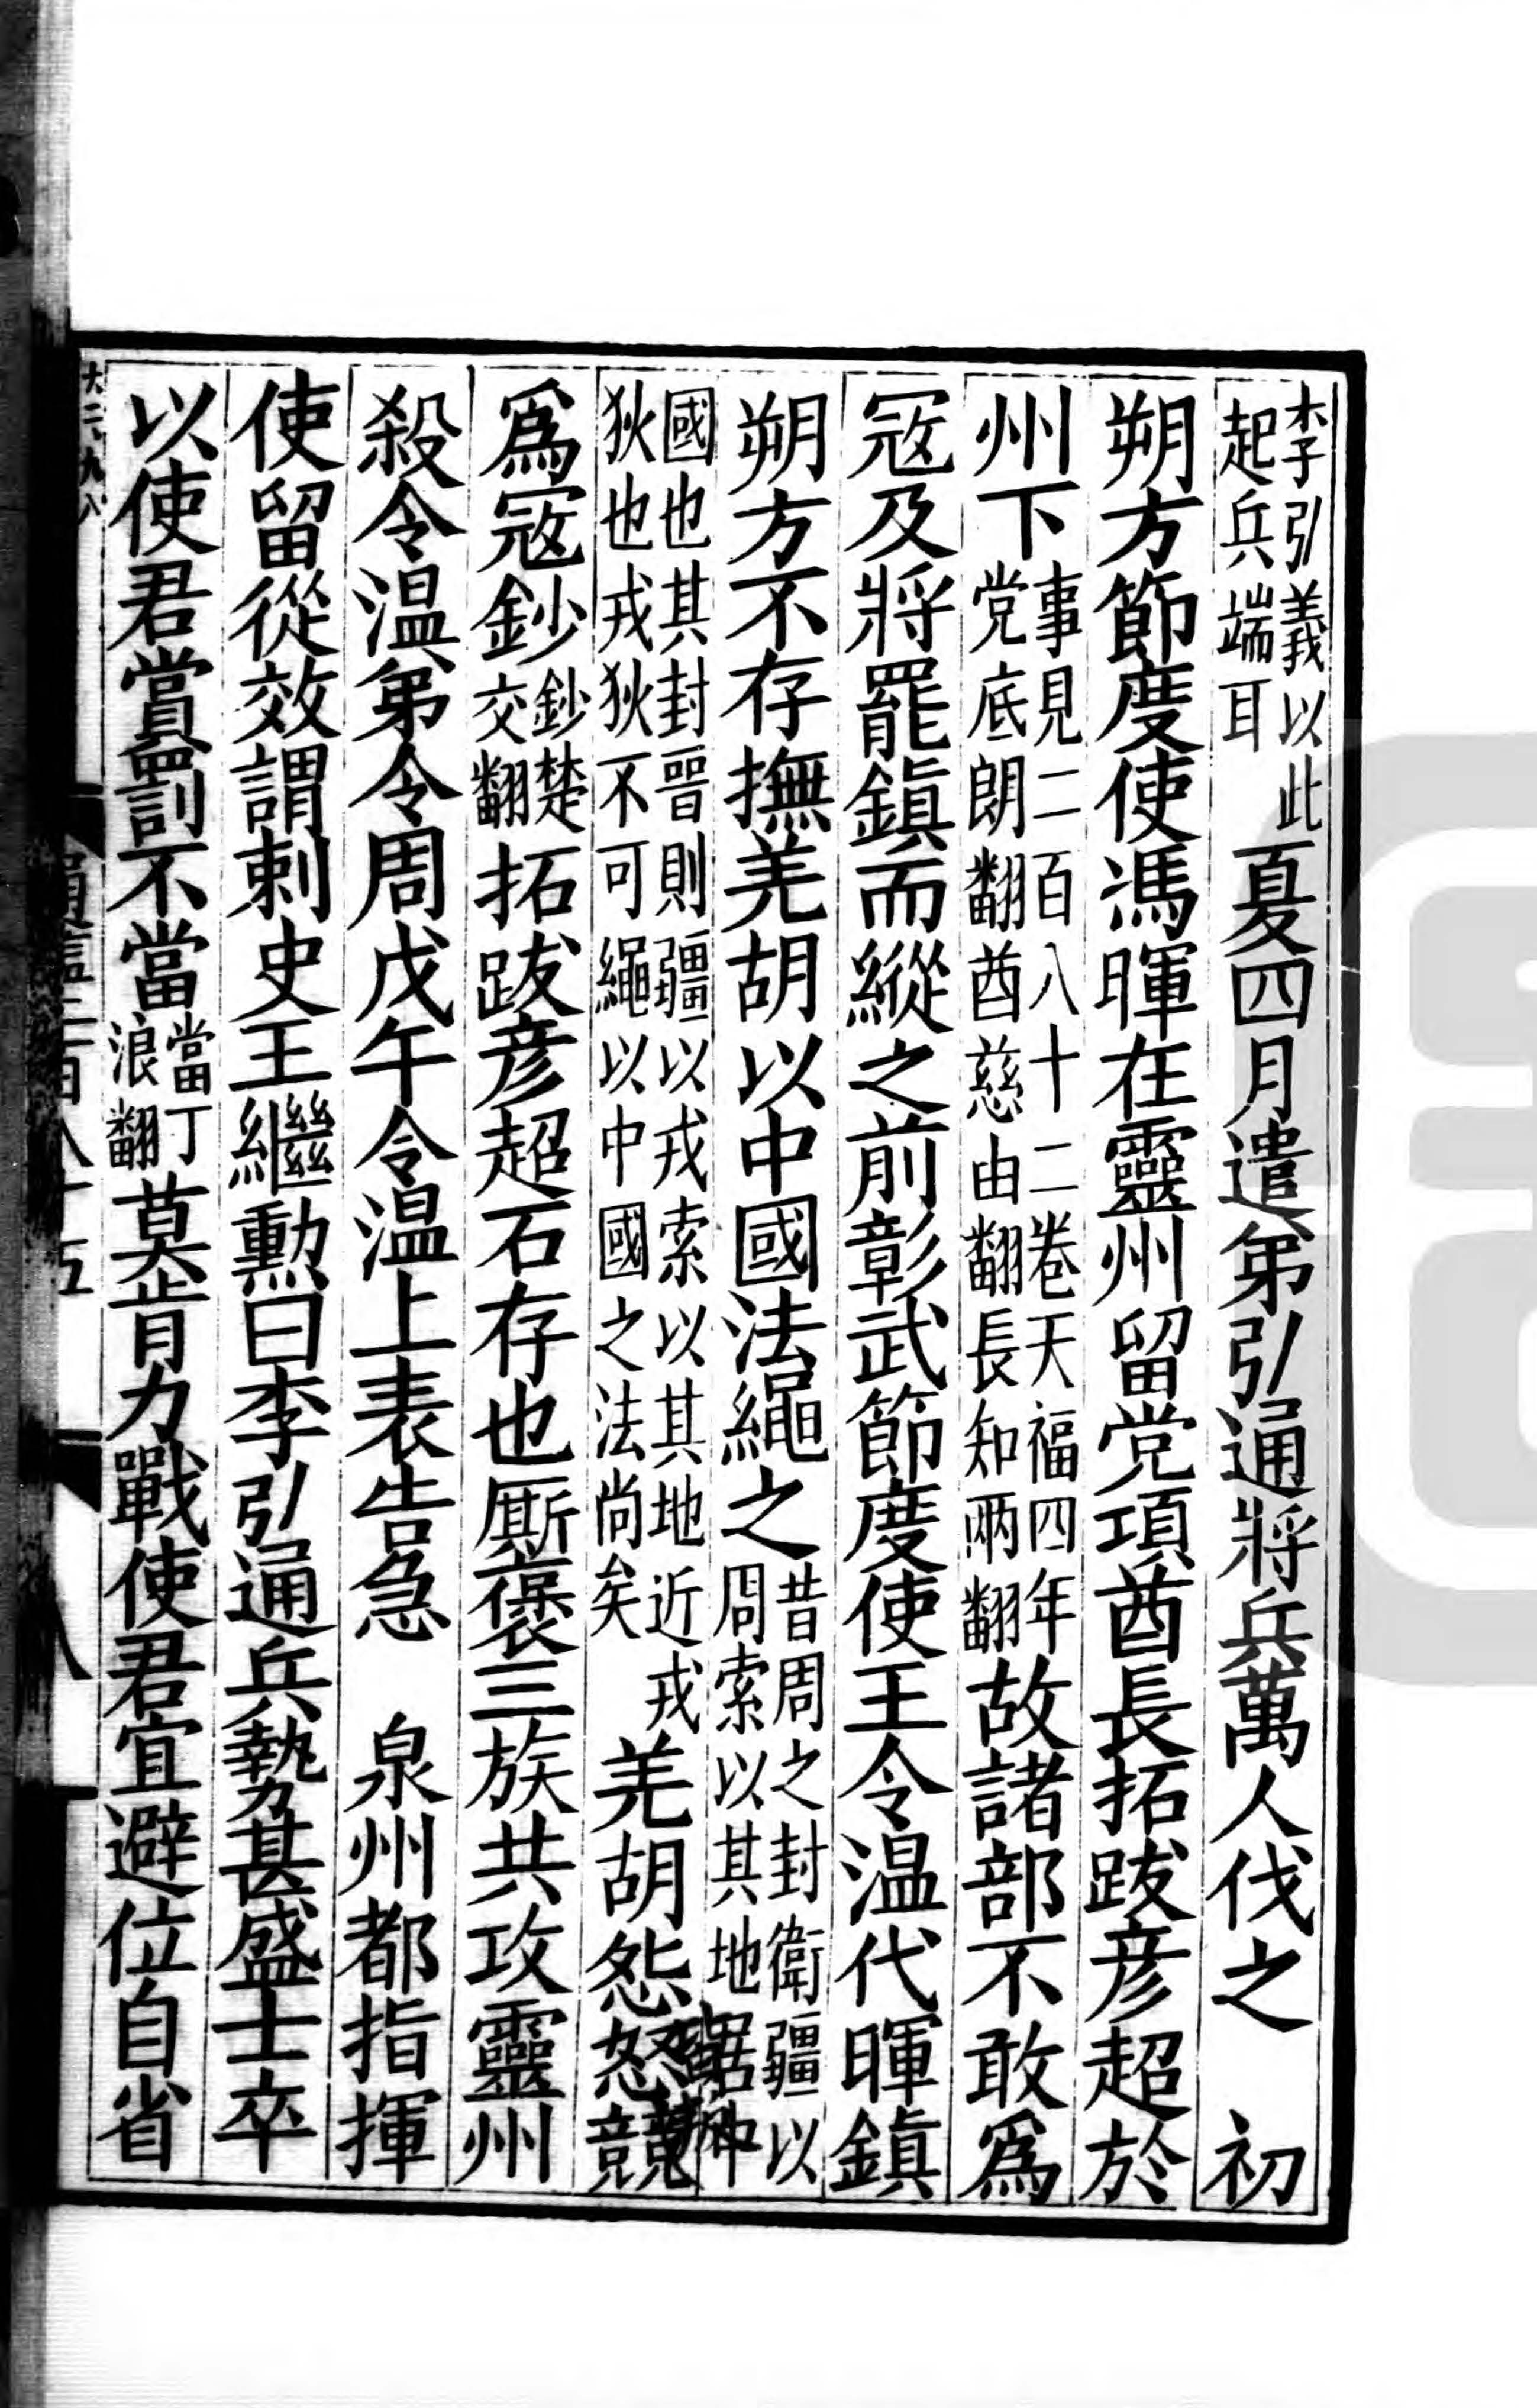 李弘義以此起兵端耳夏四月遣弟弘通將兵萬人伐之　初
朔方節度使馮暉在靈州留党項酋長拓跋彦超於
州下事見二百八十二卷天福四年党底朗翻酋慈由翻長知兩翻故諸部不敢爲
寇及將罷鎮而縱之前彰武節度使王令温代暉鎮
朔方不存撫羌胡以中國法繩之昔周之封衛疆以周索以其地踞中
國也其封晉則疆以戎索以其地近戎狄也戎狄不可繩以中國之法尚矣羌胡怨怒競
爲寇鈔鈔楚交翻拓跋彦超石存也厮褒三族共攻靈州
殺令温弟令周戊午令温上表告急　泉州都指揮
使留從效謂刺史王繼勲曰李弘通兵勢甚盛士卒
以使君賞罰不當當丁浪翻莫肯力戰使君宜避位自省
大二九八
通鑑二百八十五
八